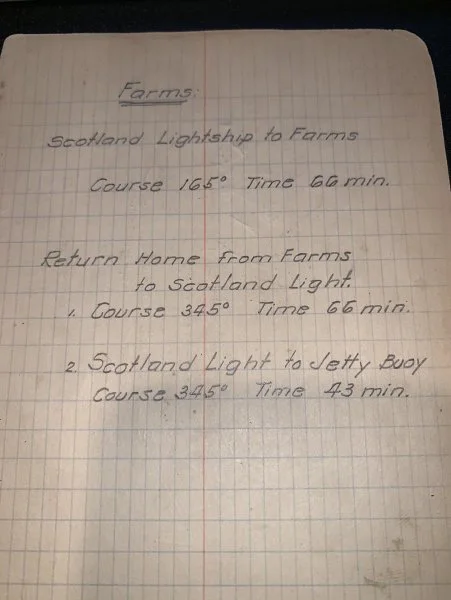 Farms.
Scotland Lightship to Farms
Course 165° Time 66 min.
Return Home from Farms
to Scotland Light.
1. Course 345° Time 66 min.
2. Scotland Light to Jetty Buoy
Course 345° Time 43 min.